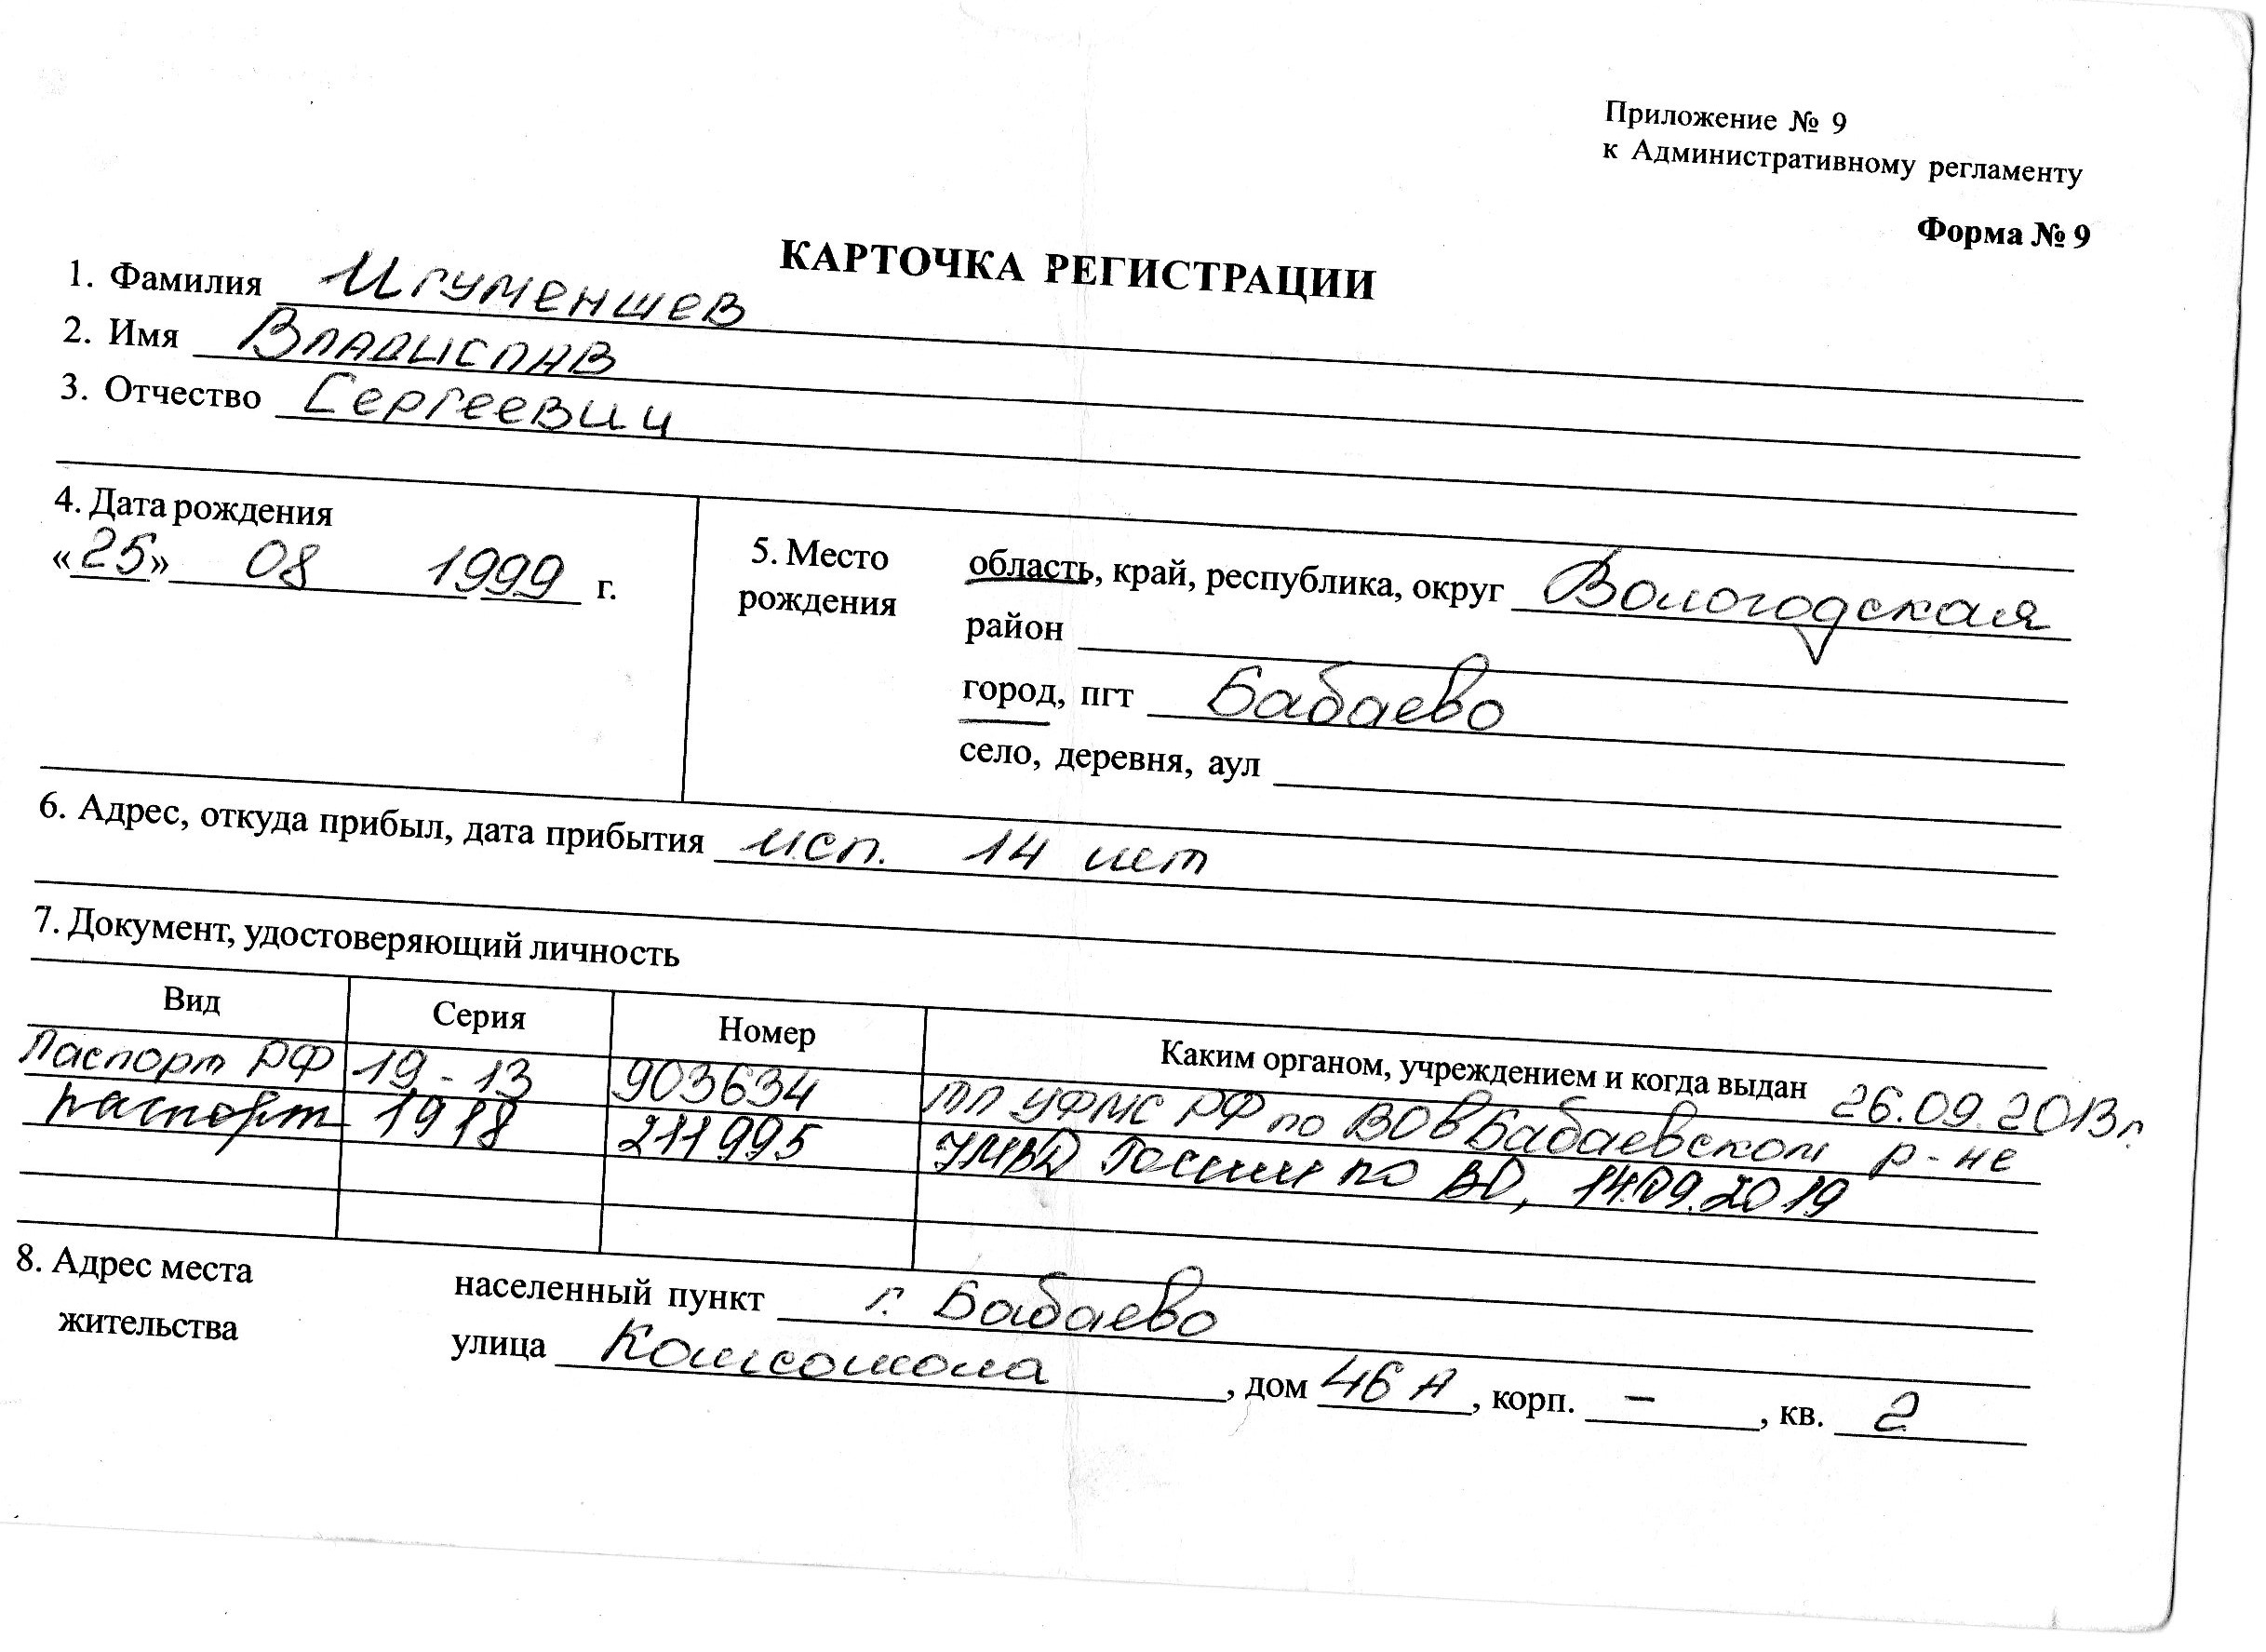 Приложение № 9
к Административному регламенту
Форма № 9
КАРТОЧКА РЕГИСТРАЦИИ
1. Фамилия Игуменшев
2. Имя Владислав
3. Отчество Сергеевич
4. Дата рождения
«25» 08 1999 г.
5. Место рождения
область, край, республика, округ Вологодская
район
город, пгт Бабаево
село, деревня, аул
6. Адрес, откуда прибыл, дата прибытия исп. 14 лет
7. Документ, удостоверяющий личность
Вид Серия Номер Каким органом, учреждением и когда выдан
Паспорт РФ 19-13 903634 ТП УФМС РФ по ВО в Бабаевском р-не 26.09.2013г.
паспорт 1918 211995 УМВД России по ВО, 14.09.2019
8. Адрес места жительства
населенный пункт г. Бабаево
улица Комсомола, дом 46 А, корп. –, кв. 2